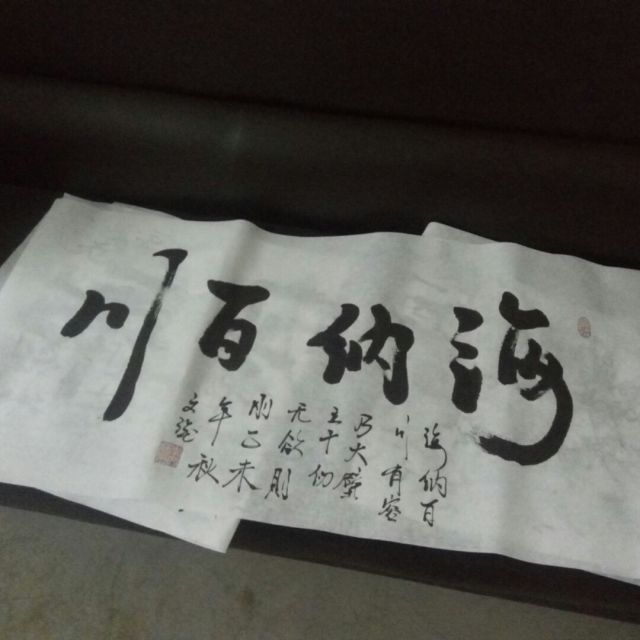 海纳百川
海纳百
川有容
乃大壁
立千仞
无欲则
刚乙未
年秋